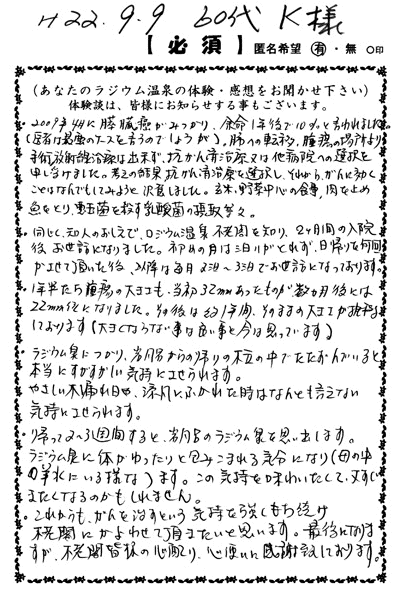 H22.9.9 60代 K様
【必須】 匿名希望 有・無 ○印
(あなたのラジウム温泉の体験・感想をお聞かせ下さい)
体験談は、皆様にお知らせする事もございます。
・2009年4月に膵臓癌がみつかり、余命1年後で10%と言われました
(医者は最悪のケースを言うのでしょうが)。肺への転移、腫瘍の場所より
手術、放射能治療は出来ず、抗がん治療又は他病院への選択を
申し受けました。考えた結果抗がん治療を選択し、それから、がんに効く
ことはなんでもしてみようと決意しました。玄米、野菜中心の食事、肉を止め
魚をとり、悪玉菌を殺す乳酸菌の摂取等々。
・同じく、知人のおしえで、ラジウム温泉 を知り、2ヶ月間の入院
後お世話になりました。初めの月は3日がとれず、日帰りを
させて頂いた後、以降は毎月2泊〜3泊でお世話になっております。
・1年半たち腫瘍の大きさも、当初32mmあったものが数ヵ月後には
22mmになりました。その後は約1年間、そのままの大きさが
しております(大きくならない事は良い事と今は思っています)
・ラジウム泉につかり、岩風呂からの帰りの木立の中でたたずんでいると
本当にすがすがしい気持にさせられます。
やさしい木漏れ日や、涼風にふかれた時はなんとも言えない
気持にさせられます。
・帰って2〜3週間すると、岩風呂のラジウム泉を思い出します。
ラジウム泉に体がゆったりと包みこまれる気分になり(母の中
の羊水にいる様な)ます。この気持を味わいたくて、又すぐ
きたくなるのかもしれません。
・これからも、がんを治すという気持を強くもち続け
にかよわせて頂きたいと思います。最後になりま
すが、 皆様の心配り、心使いに感謝しております。